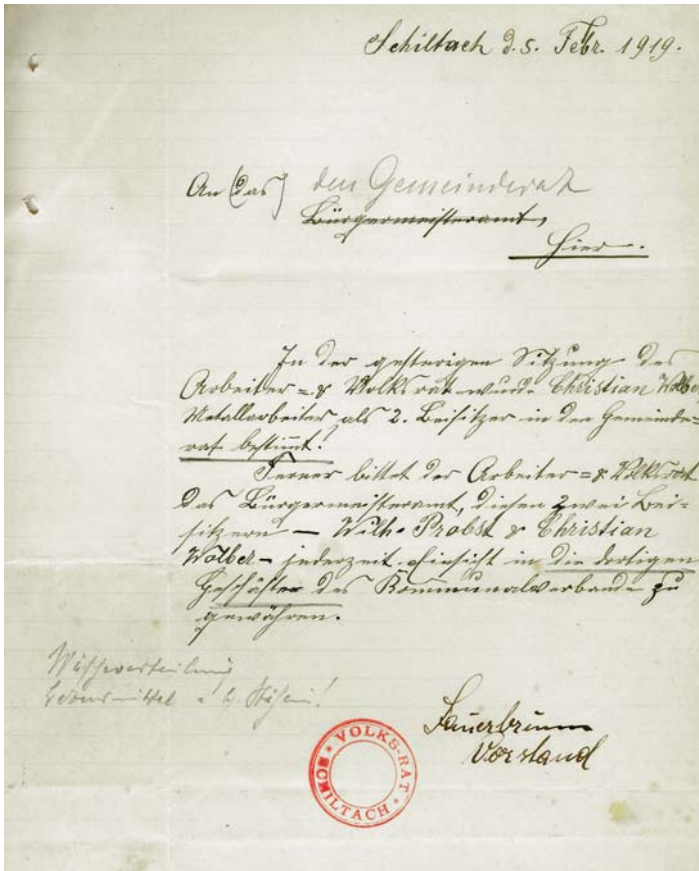 Schiltach d. 5. Febr. 1919.
An (das) den Gemeinderat
Bürgermeisteramt,
Hier.
In der gestrigen Sitzung des
Arbeiter= & Volksrat wurde Christian Wolber
Metallarbeiter als 2. Beisitzer in den Gemeinde=
rat bestimmt.
Ferner bittet der Arbeiter= & Volksrat
das Bürgermeisteramt, diesen zwei Bei-
sitzern – Wilh. Probst & Christian
Wolber – jederzeit Einsicht in die dortigen
Geschäfte des Kommunalverbands zu
gewähren.
Lebensmittel
Sauerbrunn
Vorstand
VOLKS-RAT
SCHILTACH